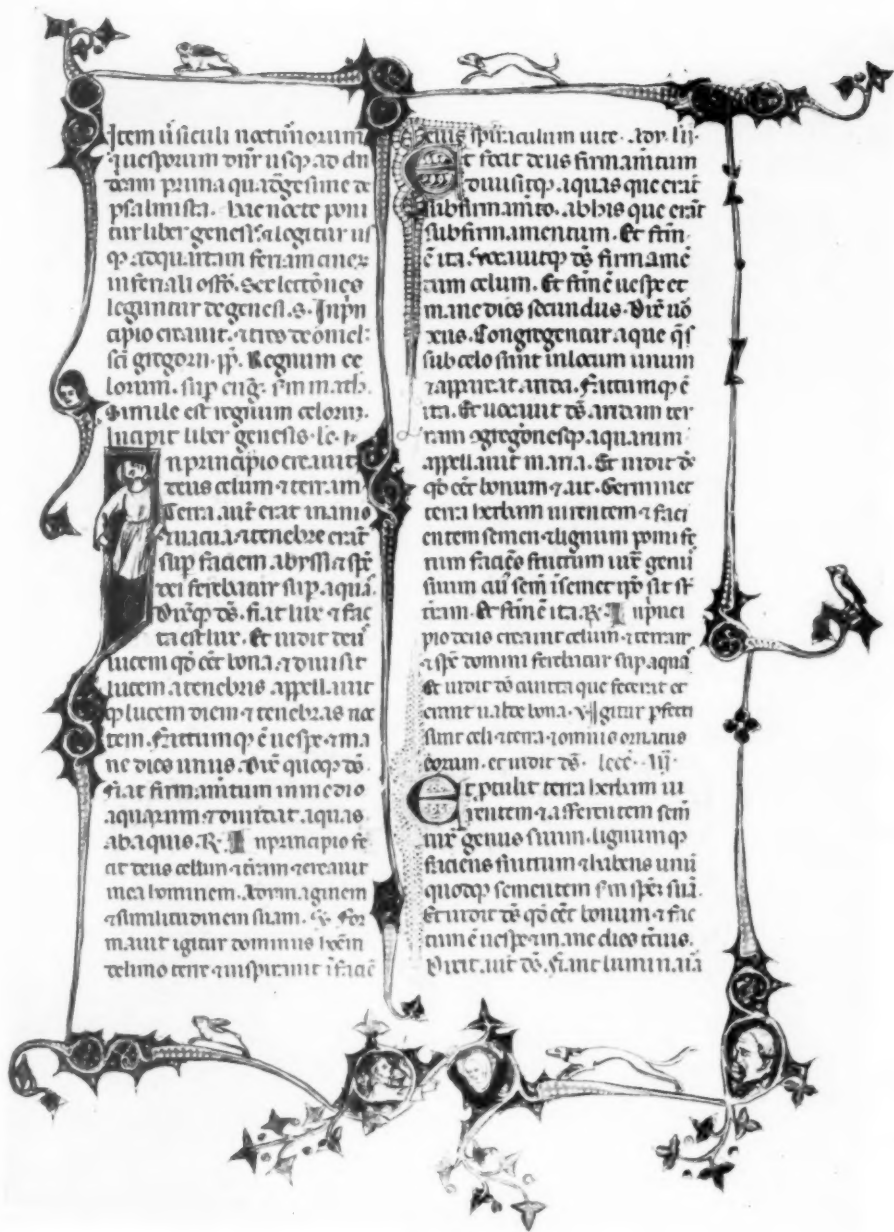 Item versiculi nocturnorum
& uesporum dnr usq; ad dn
icam prima quadgesime de
psalmista. hac nocte poni
tur liber genesis & legitur us
q; ad quartam feriam ciner
in feriali offo. Sex lectones
leguntur de genesi. s. Inpn
cipio creauit. & tres de omel
sci gregorii. pp. Regnum ce
lorum. sup eug. sm math.
Simile est regnum celorum.
Incipit liber genesis. le.
Inprincipio creauit
deus celum & terram
Terra aut erat inanis
& uacua & tenebre erat
sup faciem abyssi & sps
dei ferebatur sup aqua.
Dixq; ds. fiat lux & fac
ta est lux. Et uidit deus
lucem qd eet bona. & diuisit
lucem a tenebris appellauit
q; lucem diem & tenebras noc
tem. factumq; e uespe & ma
ne dies unus. Dix quoq; ds.
fiat firmamtum in medio
aquarum & diuidat aquas
ab aquis. R. Inprincipio fe
cit deus cellum & tram & creauit
inea hominem. Ad ymaginem
& similitudinem suam. V. For
mauit igitur dominus hoiem
delimo terre & inspirauit i facie
eius spiraculum uite. Ad y. lec. ii.
Et fecit deus firmamtum
diuisitq; aquas que erat
sub firmamto. ab his que erat
sub firmamentum. Et ftm
e ita. Vocauitq; ds firmame
tum celum. Et ftm e uespe et
mane dies secundus. Dix uo
deus. Congregentur aque qs
sub celo sunt in locum unum
& appareat arida. factumq; e
ita. Et uocauit ds aridam ter
ram & gregonesq; aquarum
appellauit maria. Et uidit ds
qd eet bonum & ait. Germinet
terra herbam uirentem & faci
entem semen & lignum pomife
rum facies fructum iux genus
suum cui sem i semet ipo sit sr
tram. Et ftm e ita. R. Inprinci
pio deus creauit celum & terram
& sps domini ferebatur sup aqua
Et uidit ds cuncta que fecerat et
erant ualde bona. V. Igitur pfecti
sunt celi & terra & omnis ornatus
eorum. et uidit ds. lecc. iii.
Et ptulit terra herbam ui
rentem & afferentem sem
iux genus suum. lignumq;
faciens fructum & habens unu
quodq; sementem sm spez sua.
Et uidit ds qd eet bonum & fac
tum e uespe & mane dies tcius.
Dixit aut ds. fiant luminaria